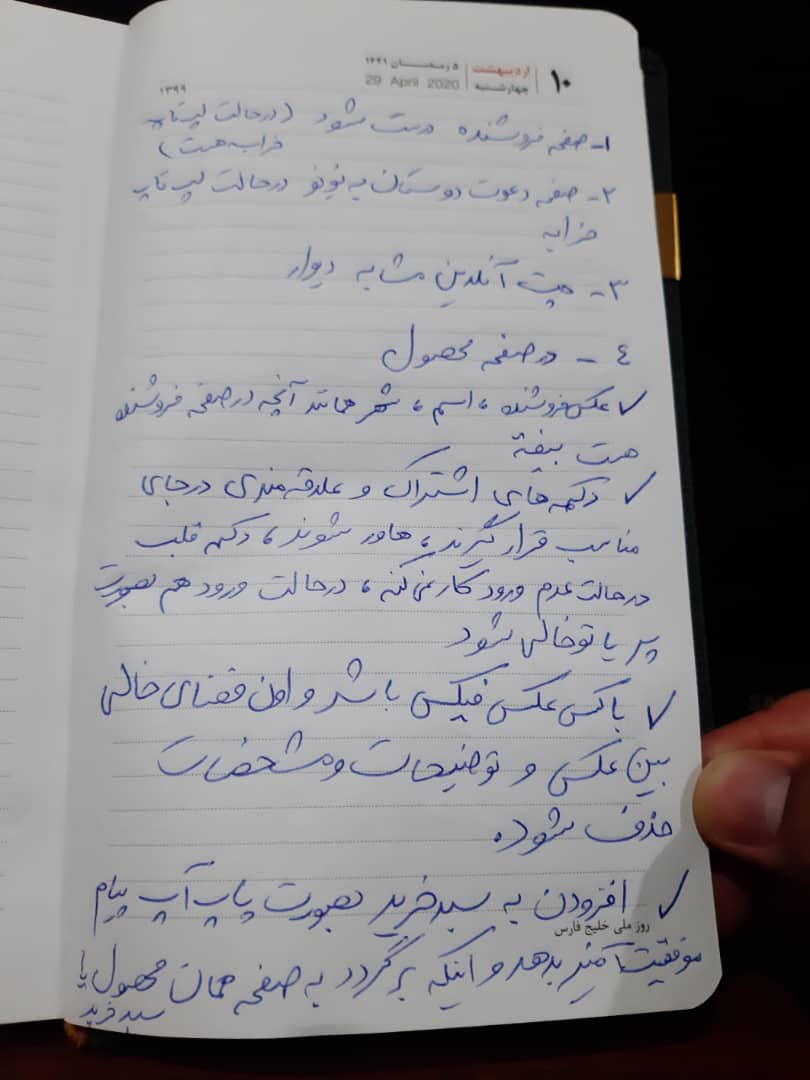 ۱۰ اردیبهشت ۵ رمضان ۱۴۴۱
چهارشنبه 29 April 2020
۱۳۹۹
۱- صفحه فروشنده درست شود (درحالت لپ تاپ
خراب هست)
۲- صفحه دعوت دوستان به نونو درحالت لپ تاپ
خرابه
۳- چت آنلاین مشابه دیوار
٤ - در صفحه محصول
✓ عکس فروشنده ، اسم ، شهر همانند آنچه در صفحه فروشنده
هست بیفته
✓ دکمه های اشتراک و علاقه مندی درجای
مناسب قرار گیرند ، هاور شوند ، دکمه قلب
درحالت عدم ورود کار نمی کنه ، درحالت ورود هم بصورت
پر یا توخالی شود
✓ باکس عکس فیکس باشد و اون فضای خالی
بین عکس و توضیحات و مشخصات
حذف شود.
✓ افزودن به سبد خرید بصورت پاپ آپ پیام
روز ملی خلیج فارس
موفقیت آمیز بدهد و اینکه برگردد به صفحه همان محصول یا
سبد خرید